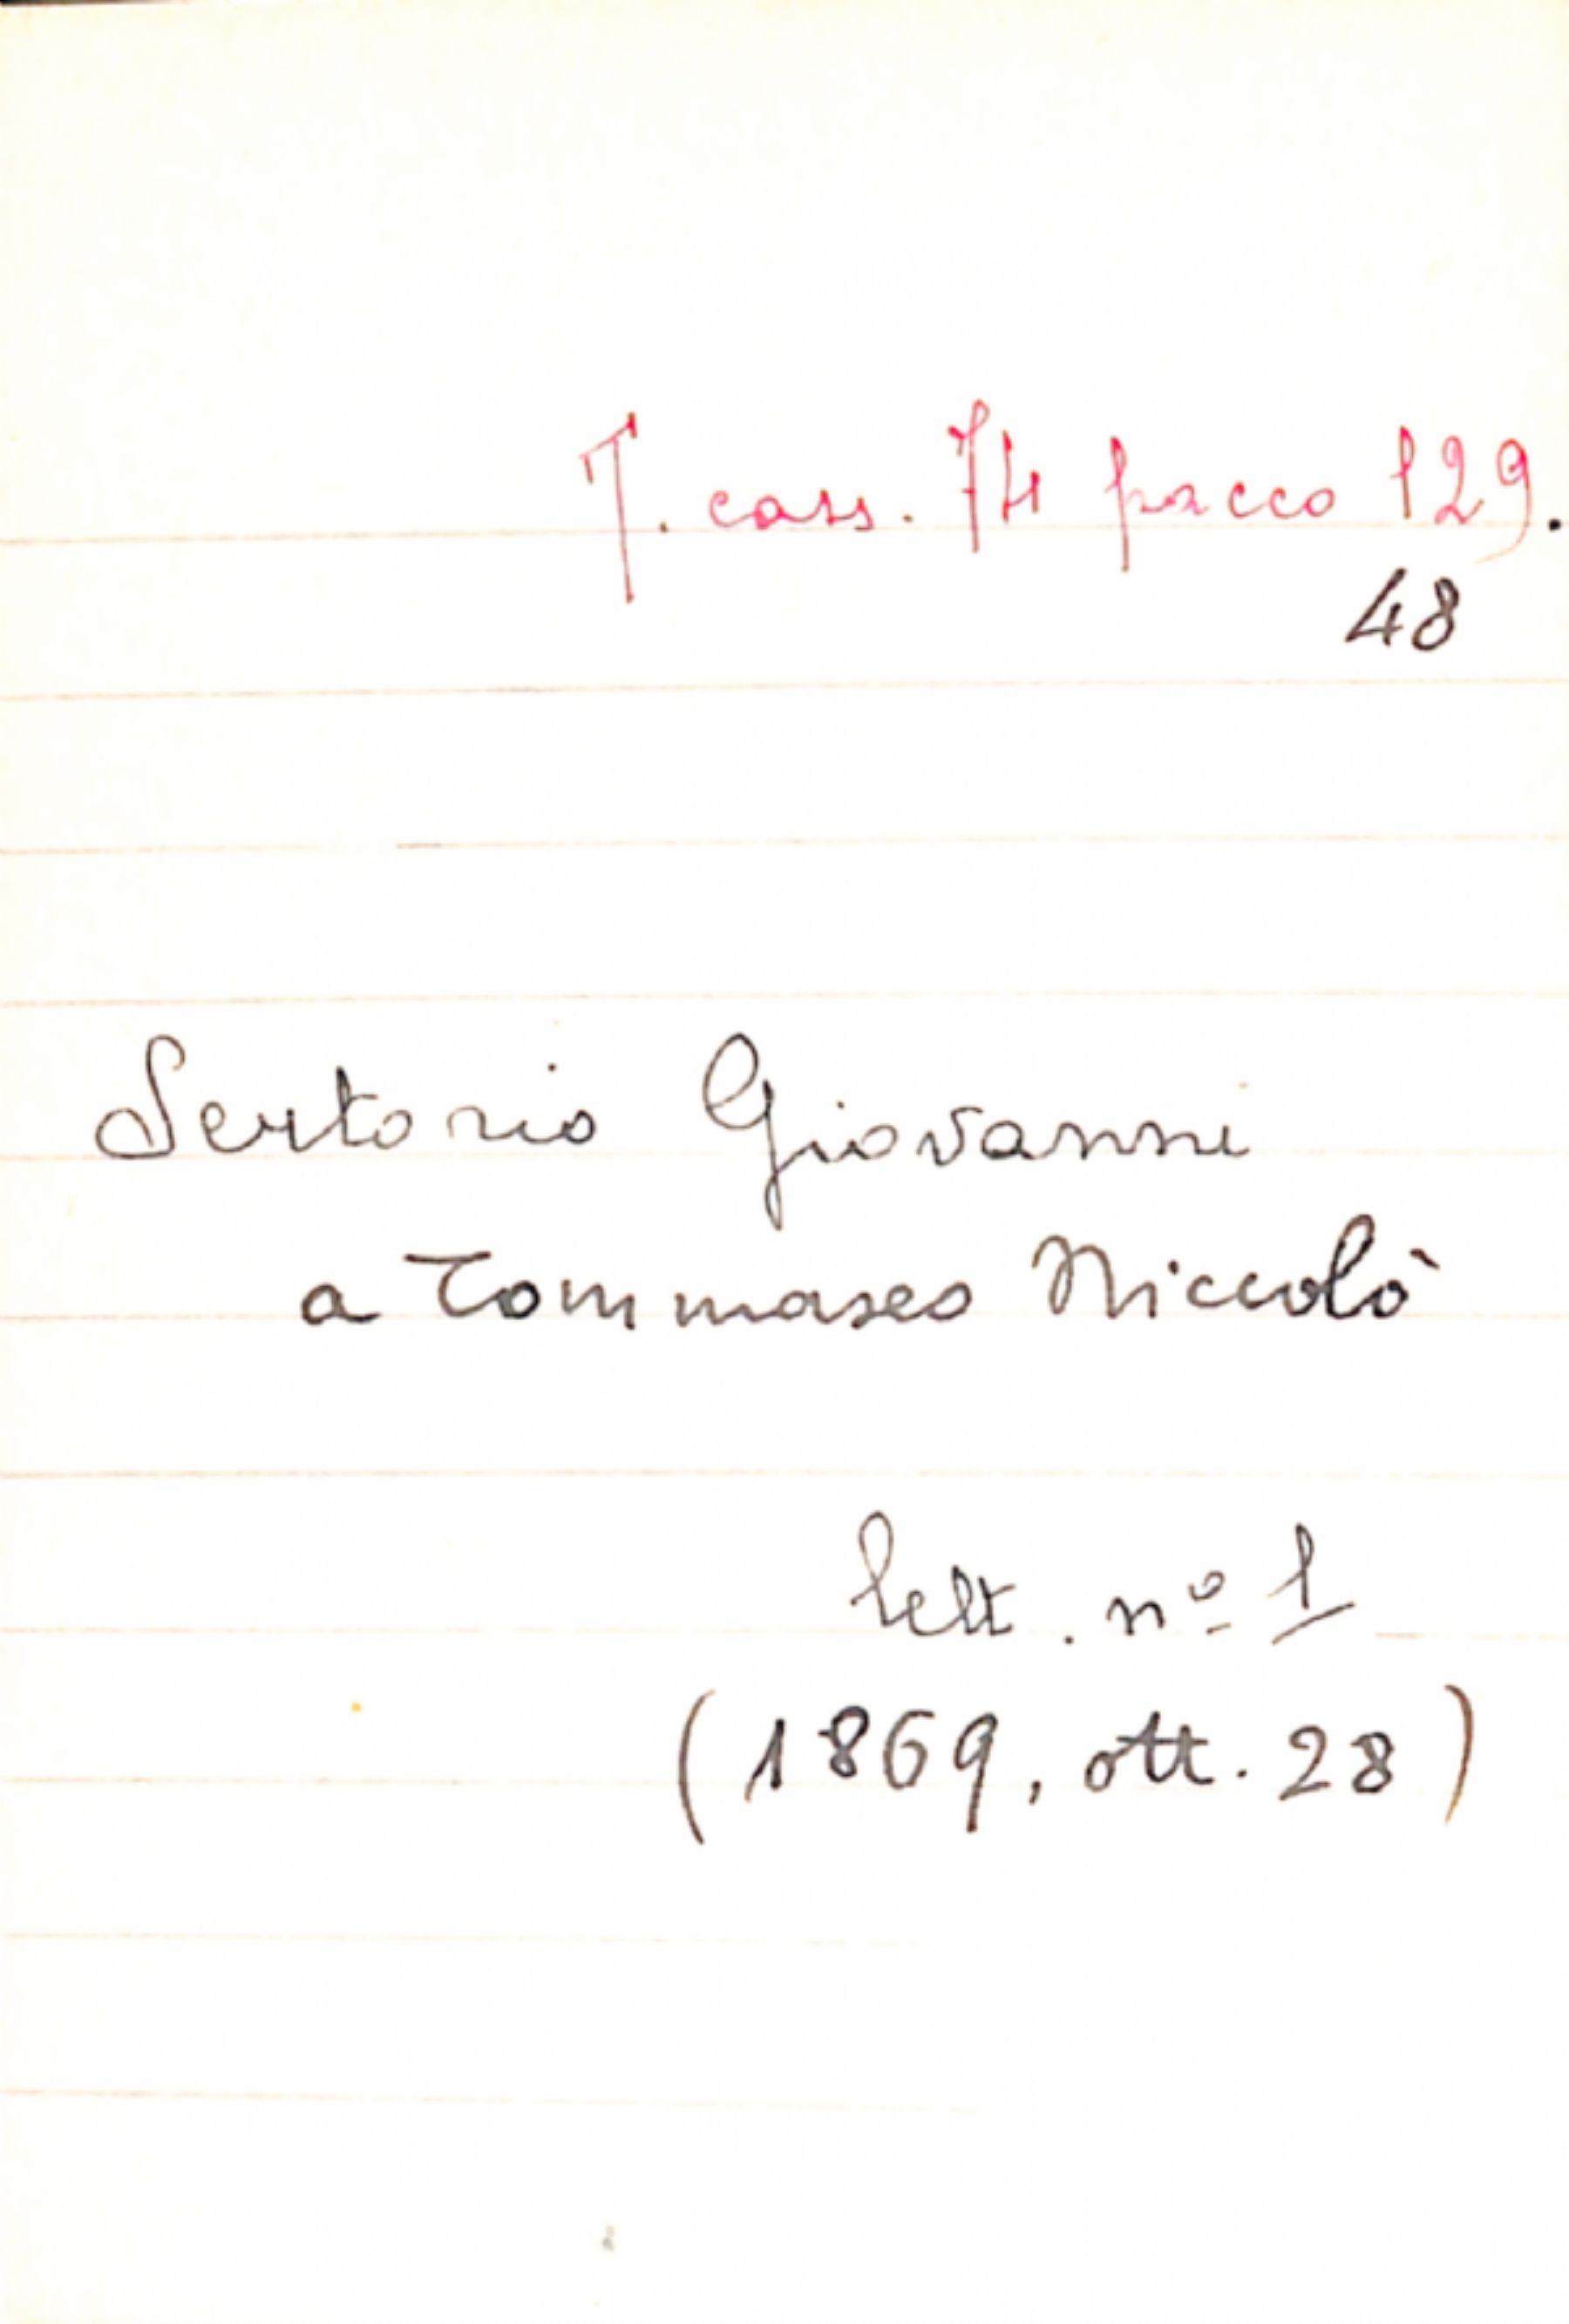 T. cass. 74 pacco 129.
48
Sertorio Giovanni
a Tommaseo Niccolò
lett. nº 1
(1869, ott. 28)